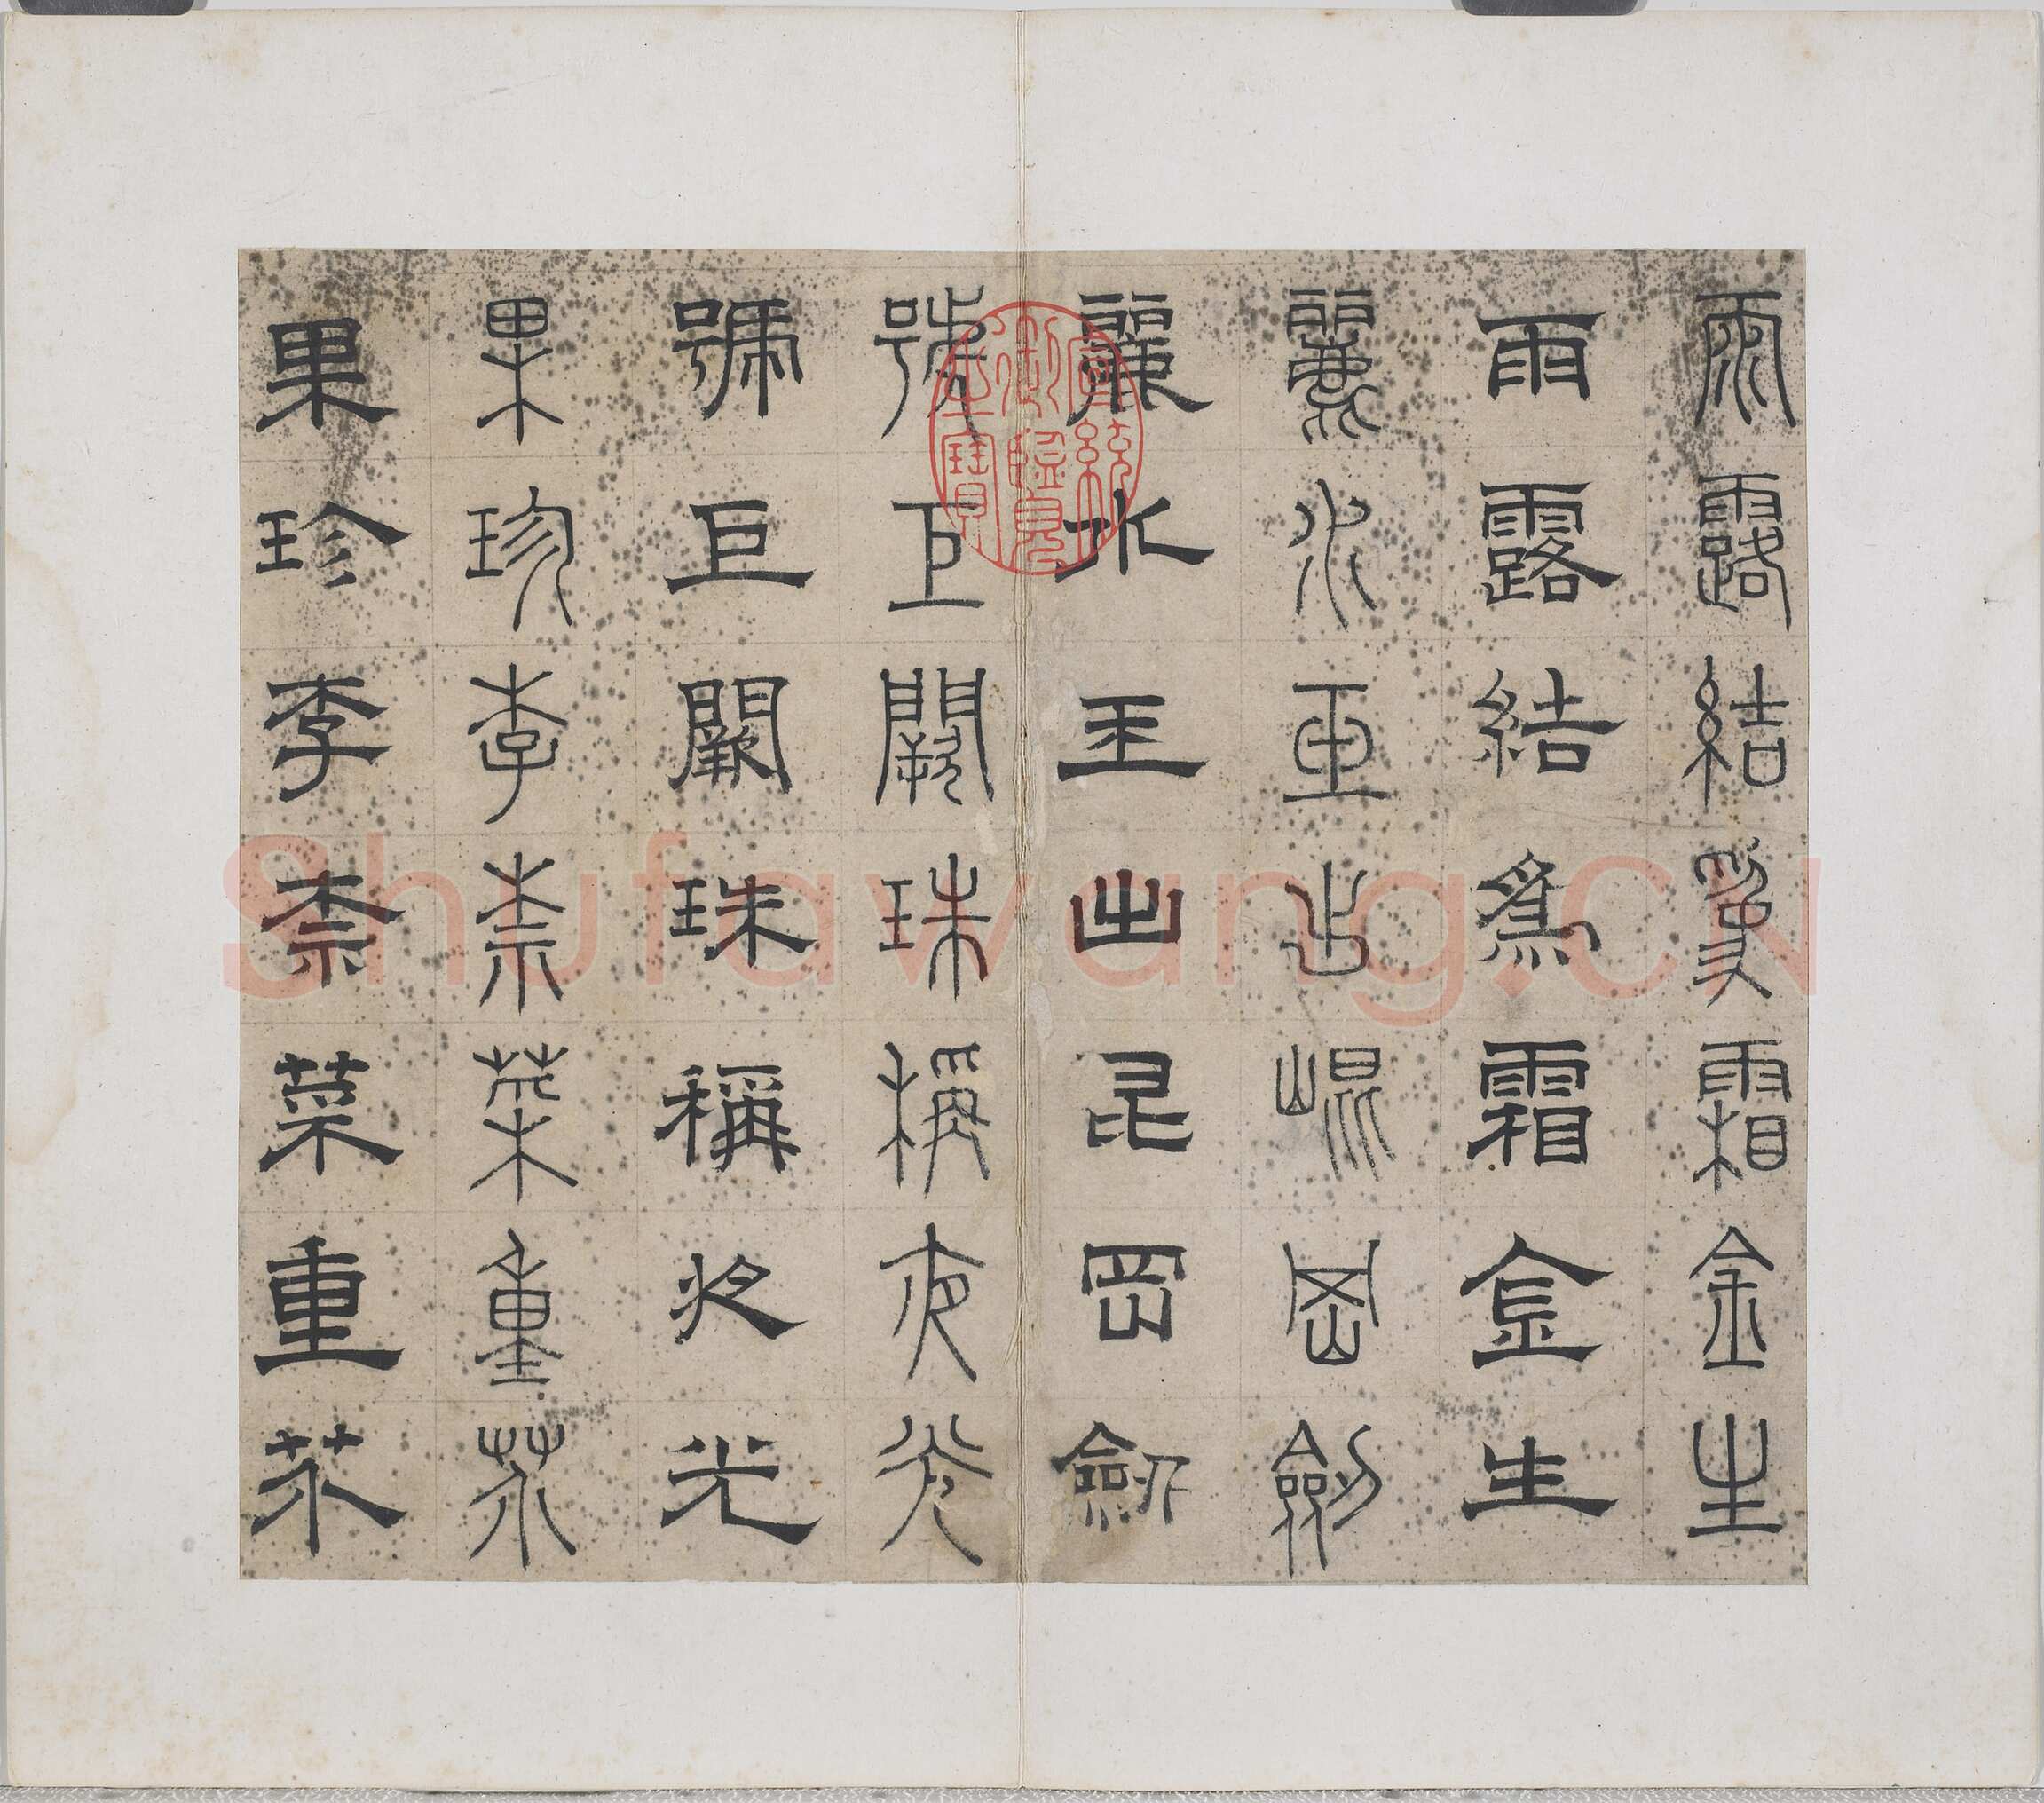 雨露結爲霜金生
雨露結爲霜金生
麗水玉出崐岡劒
麗水玉出昆岡劒
號巨闕珠稱夜光
號巨闕珠稱夜光
果珍李柰菜重芥
果珍李柰菜重芥
宣統御覽之寶
Shufawang.CN